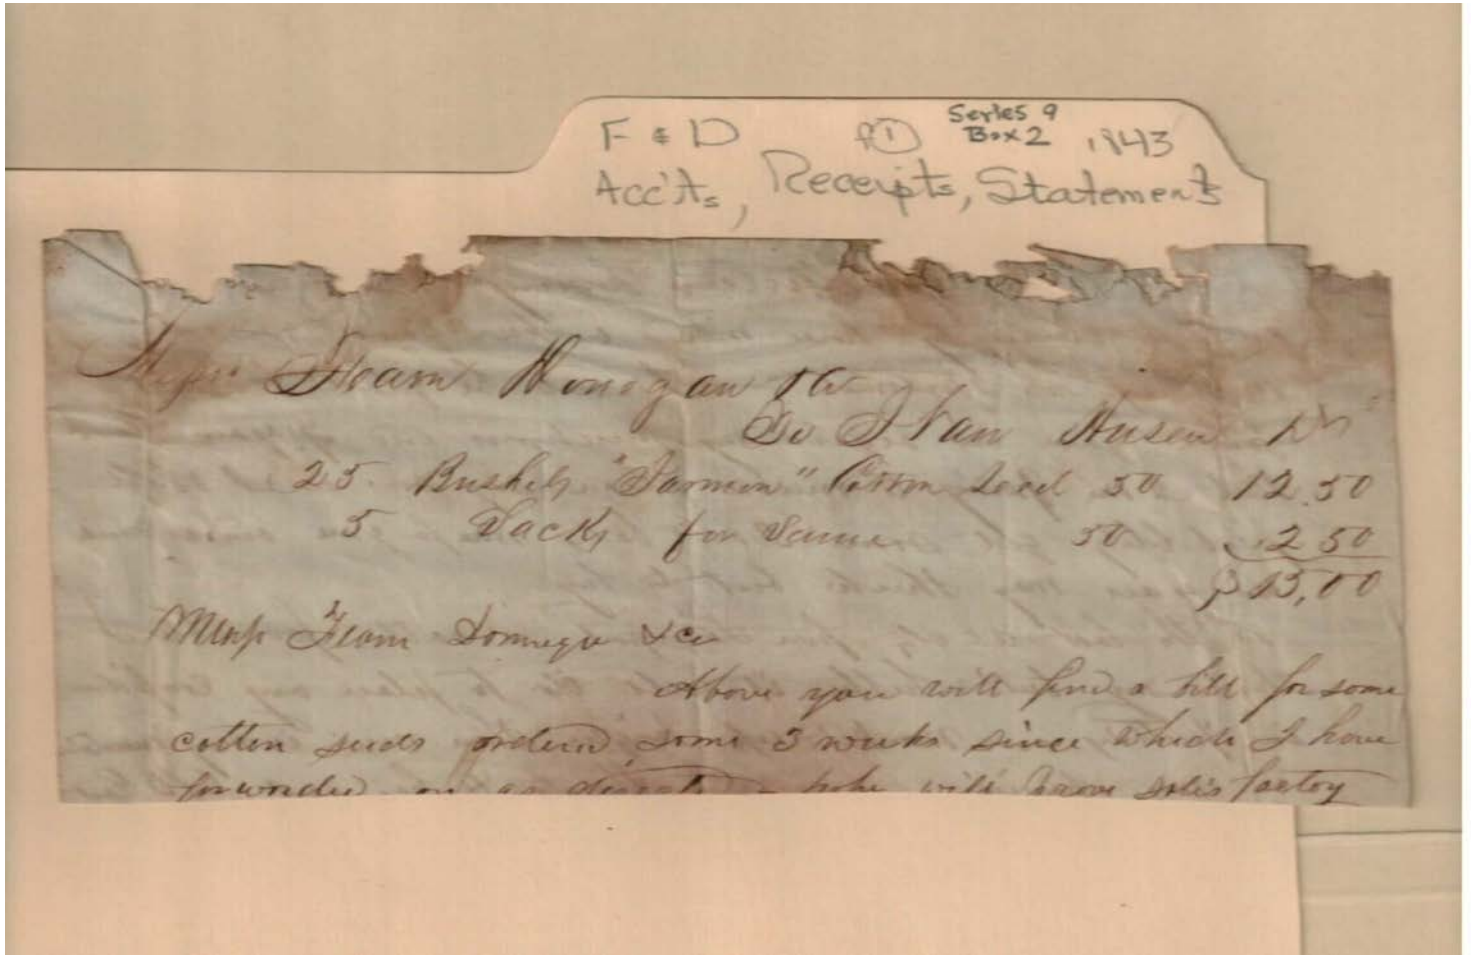 Series 9
F & D ① Box 2 1843
Acc'ts, Receipts, Statements
Messrs Fearn Donegan & Co
To J Van Husen Dr
25 Bushels " " Cotton Seed 50 12.50
5 Sacks for Same 50 2 50
$15,00
Messrs Fearn Donnegu & Co
Above you will find a bill for some
cotton seeds orderd some 3 weeks since which I have
forwarded on as directed hope will prove satisfactoy